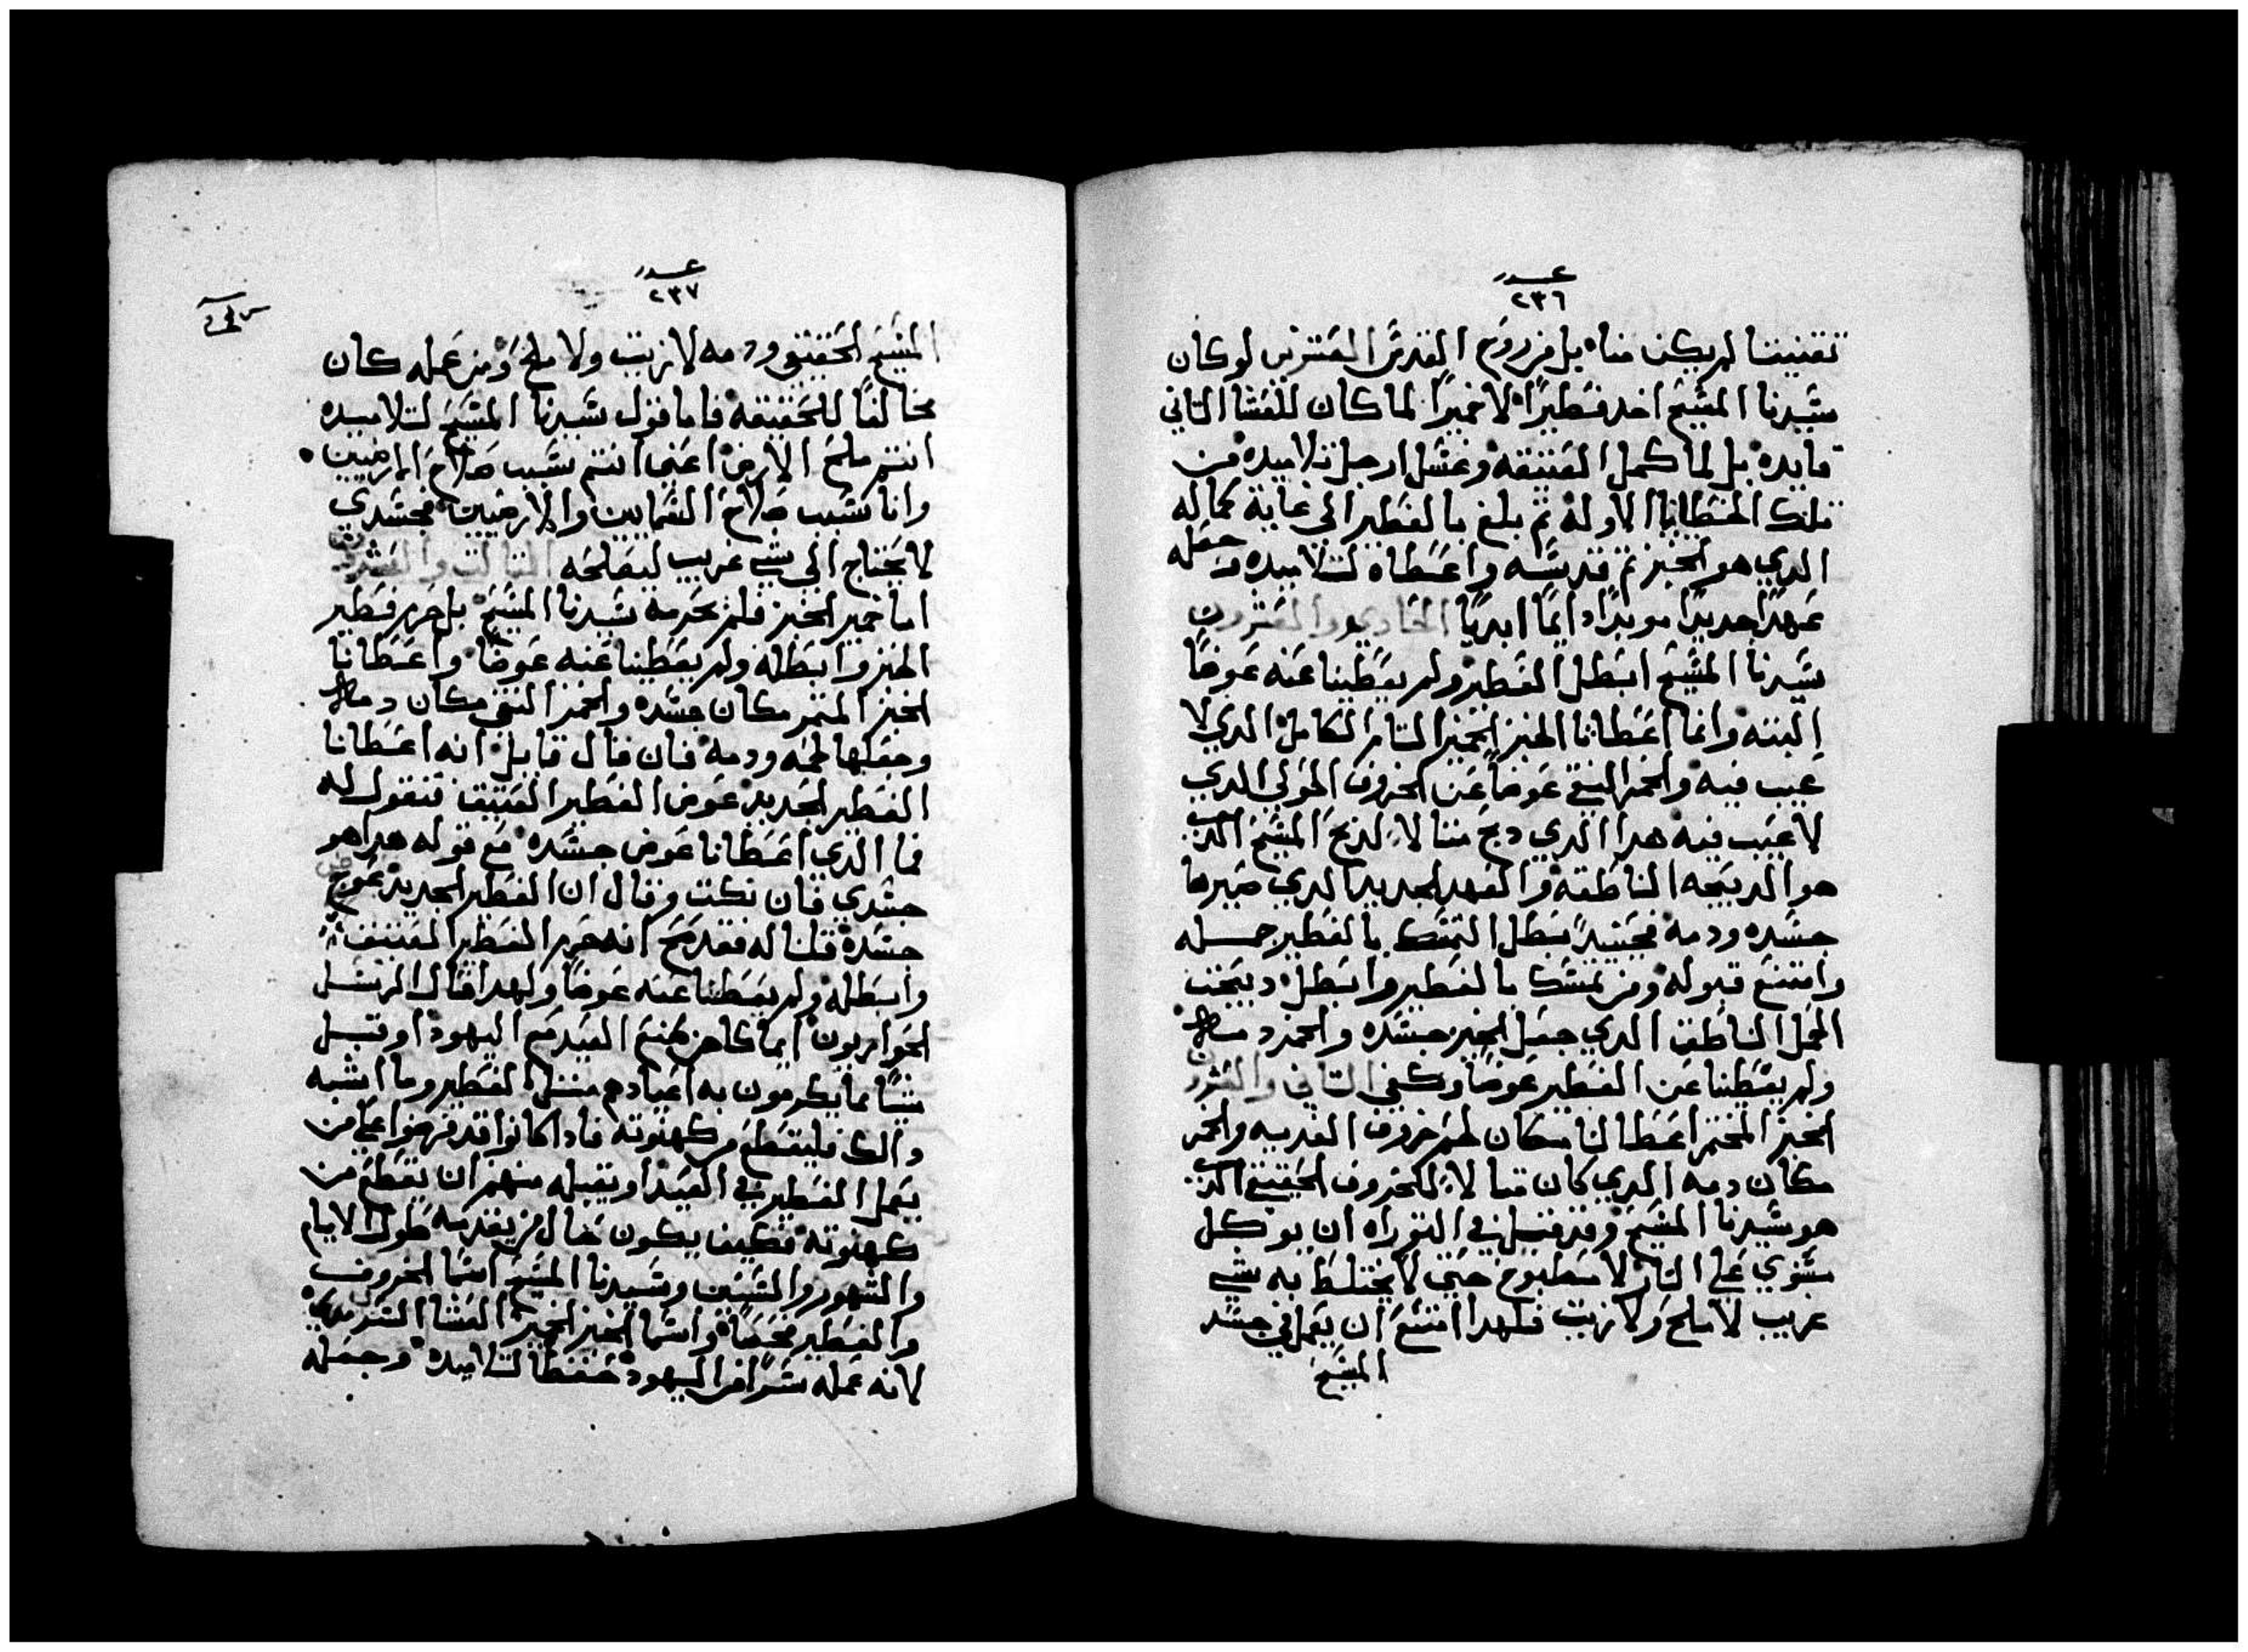 عدد
٢٣٦
تقنيننا لم يكن منا بل من روح القدس لو كان
سيدنا المسيح اخد فطيرًا لا خميرًا لما كان للعشا التاني
فايده بل لما كمل العتيقه وغسل ارجل تلاميده من
تلك الخطايا الاوله ثم بلغ بالفطير الي غاية كماله
الدي هو الخبز ثم قدسه واعطاه لتلاميده وجعله
عهدًا جديدًا موبدًا دايمًا ابديًا الحادي والعشرون
سيدنا المسيح ابطل الفطير ولم يعطينا عنه عوضًا
البته وانما اعطانا الخبز الخمير التام الكامل الدي لا
عيب فيه والخمر النقي عوضًا عن الخروف الحولي الدي
لا عيب فيه هدا الدي دبح مثالا لدبح المسيح الدي
هو الدبيحه الناطقه والعهد الجديد الدي صيرها
جسده ودمه فحينيدٍ بطل التمسك بالفطير جمله
وامتنع قبوله ومن يمسك بالفطير وابطل دبيحت
الحمل الناطق الدي جعل الخبز جسده والخمر دمه
ولم يعطينا عن الفطير عوضًا وكفي التاني والعشرون
الخبز المختمر اعطا لنا مكان لحم خروف الفديه والخمر
مكان دمه الدي كان مثالا للخروف الحقيقي الدي
هو سيدنا المسيح وقد قيل في التوراه ان يوكل
مشوي علي النار لا مطبوخ حتي لا يختلط به شي
غريب لا ملح ولا زيت فلهدا امتنع ان يعمل في جسد
المسيح
عدد
٢٣٧
المسيح الحقيقي ودمه لا زيت ولا ملح ومن عمله كان
مخالفًا للحقيقه فاما قول سيدنا المسيح لتلاميده
انتم ملح الارض اعني انتم سبب صلاح الارضيين
وانا سبب صلاح السمايين والارضيين فجسدي
لا يحتاج الي شي غريب ليصلحه التالت والعشرون
اما خمير الخبز فلم يحرمه سيدنا المسيح بل حرم فطير
الخبز وابطله ولم يعطينا عنه عوضًا واعطانا
الخبز المختمر مكان جسده والخمر النقي مكان دمه
وجعلها لحمه ودمه فان قال قايل انه اعطانا
الفطير الجديد عوض الفطير العتيق فنقول له
فما الدي اعطانا عوض جسده مع قوله هدا هو
جسدي فان نكت وقال ان الفطير الجديد عوض
جسده قلنا له فقد صح انه حرم الفطير العتيق
وابطله ولم يعطينا عنه عوضًا ولهدا قال الرسل
الحواريون ايما كاهن صنع العيد مع اليهود او قبل
شيًا مما يكرمون به اعيادهم مثل الفطير وما اشبه
دالك فليقطع من كهنوته فادا كانوا قد فرضوا علي من
يعمل الفطير في العيد او يقبله منهم ان يقطع من
كهنوته فكيف يكون حال من يقدسه طول الايام
والشهور والسنين وسيدنا المسيح اسما الخروف
والفطير فصحًا واسما الخبز الخمير العشا السر
لانه عمله سرًا من اليهود حفظًا لتلاميده وجعله